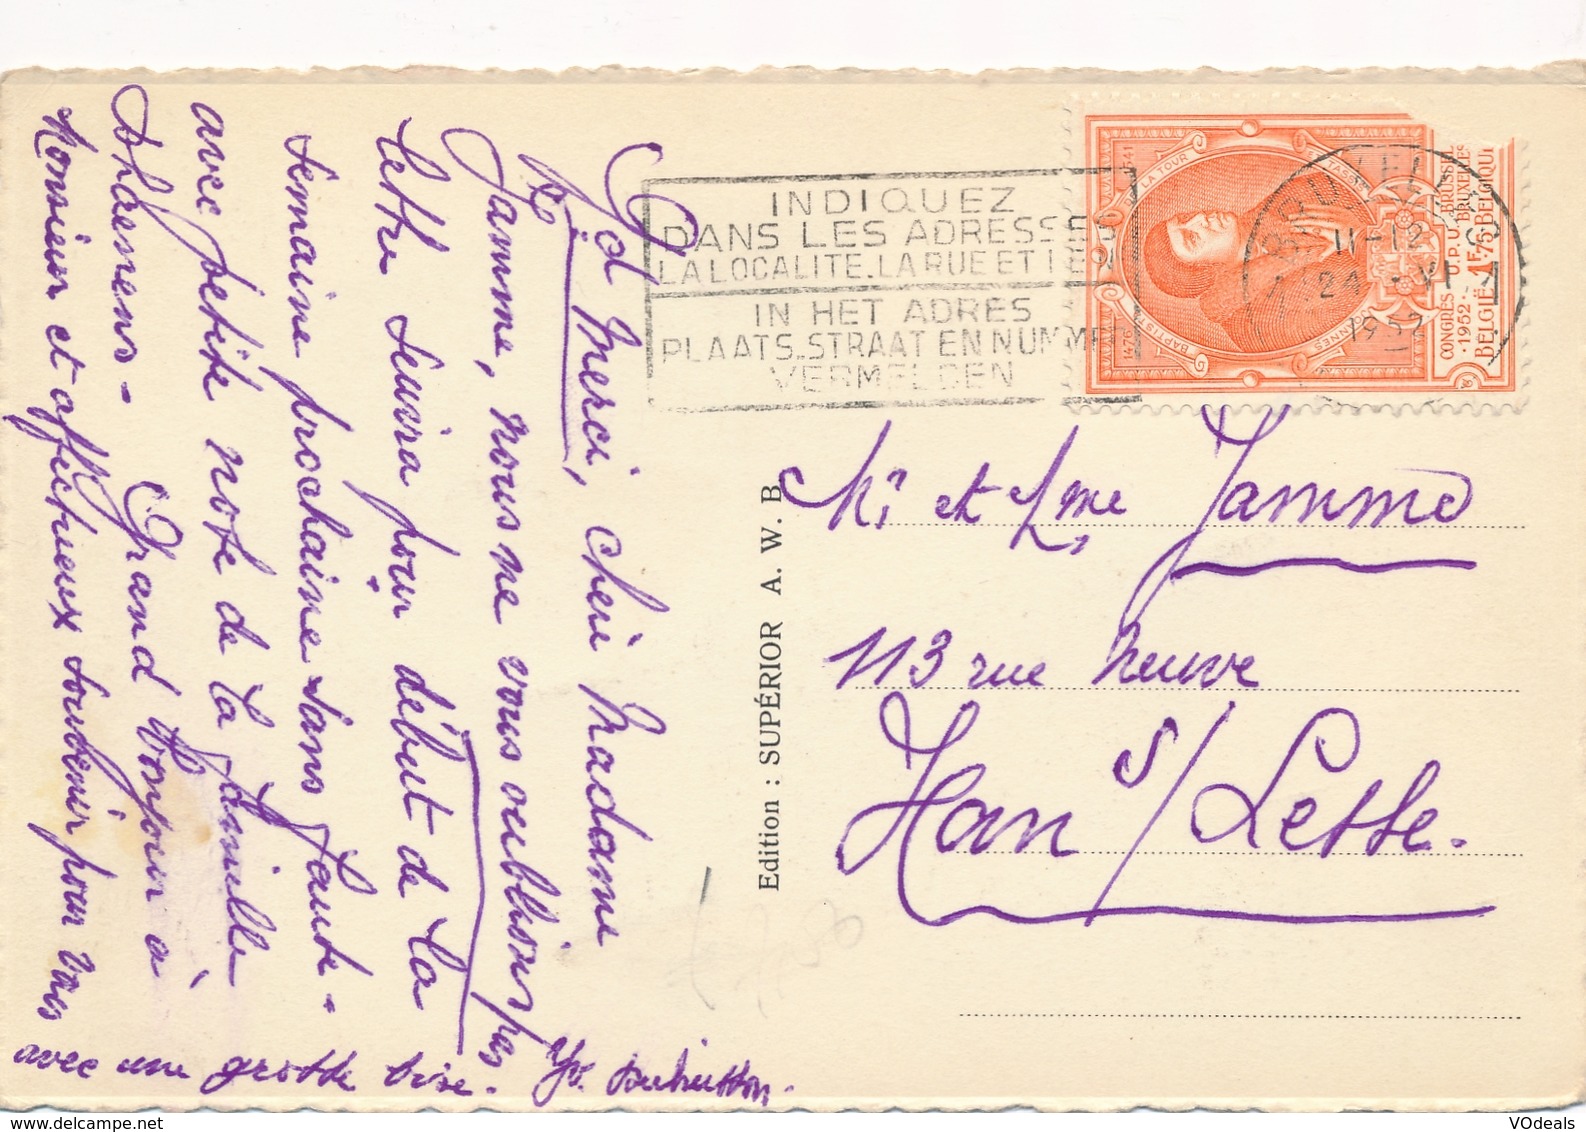 Gd Merci, chère Madame
Jamme, nous ne vous oublions pas
lettre suivra pour début de la
semaine prochaine sans faute -
avec petite note de la famille
Dhaenens - Grand bonjour à
Monsieur et affectueux souvenir pour vous
avec une grosse bise.
INDIQUEZ
DANS LES ADRESSES
LA LOCALITE. LA RUE ET LE N°
IN HET ADRES
PLAATS. STRAAT EN NUMMER
VERMELDEN
11-12
24 - VI
1952
1541
LA TOUR
TASSIS
BAPTISTE
JOHANNES
1470
CONGRÈS U.P.U. BRUSSEL
·1952· BRUXELLES
BELGIË 1F75 BELGIQUE
Edition : SUPÉRIOR A. W. B.
Mr et Mme Jamme
113 rue Neuve
Han s/ Lesse.
VDdeals